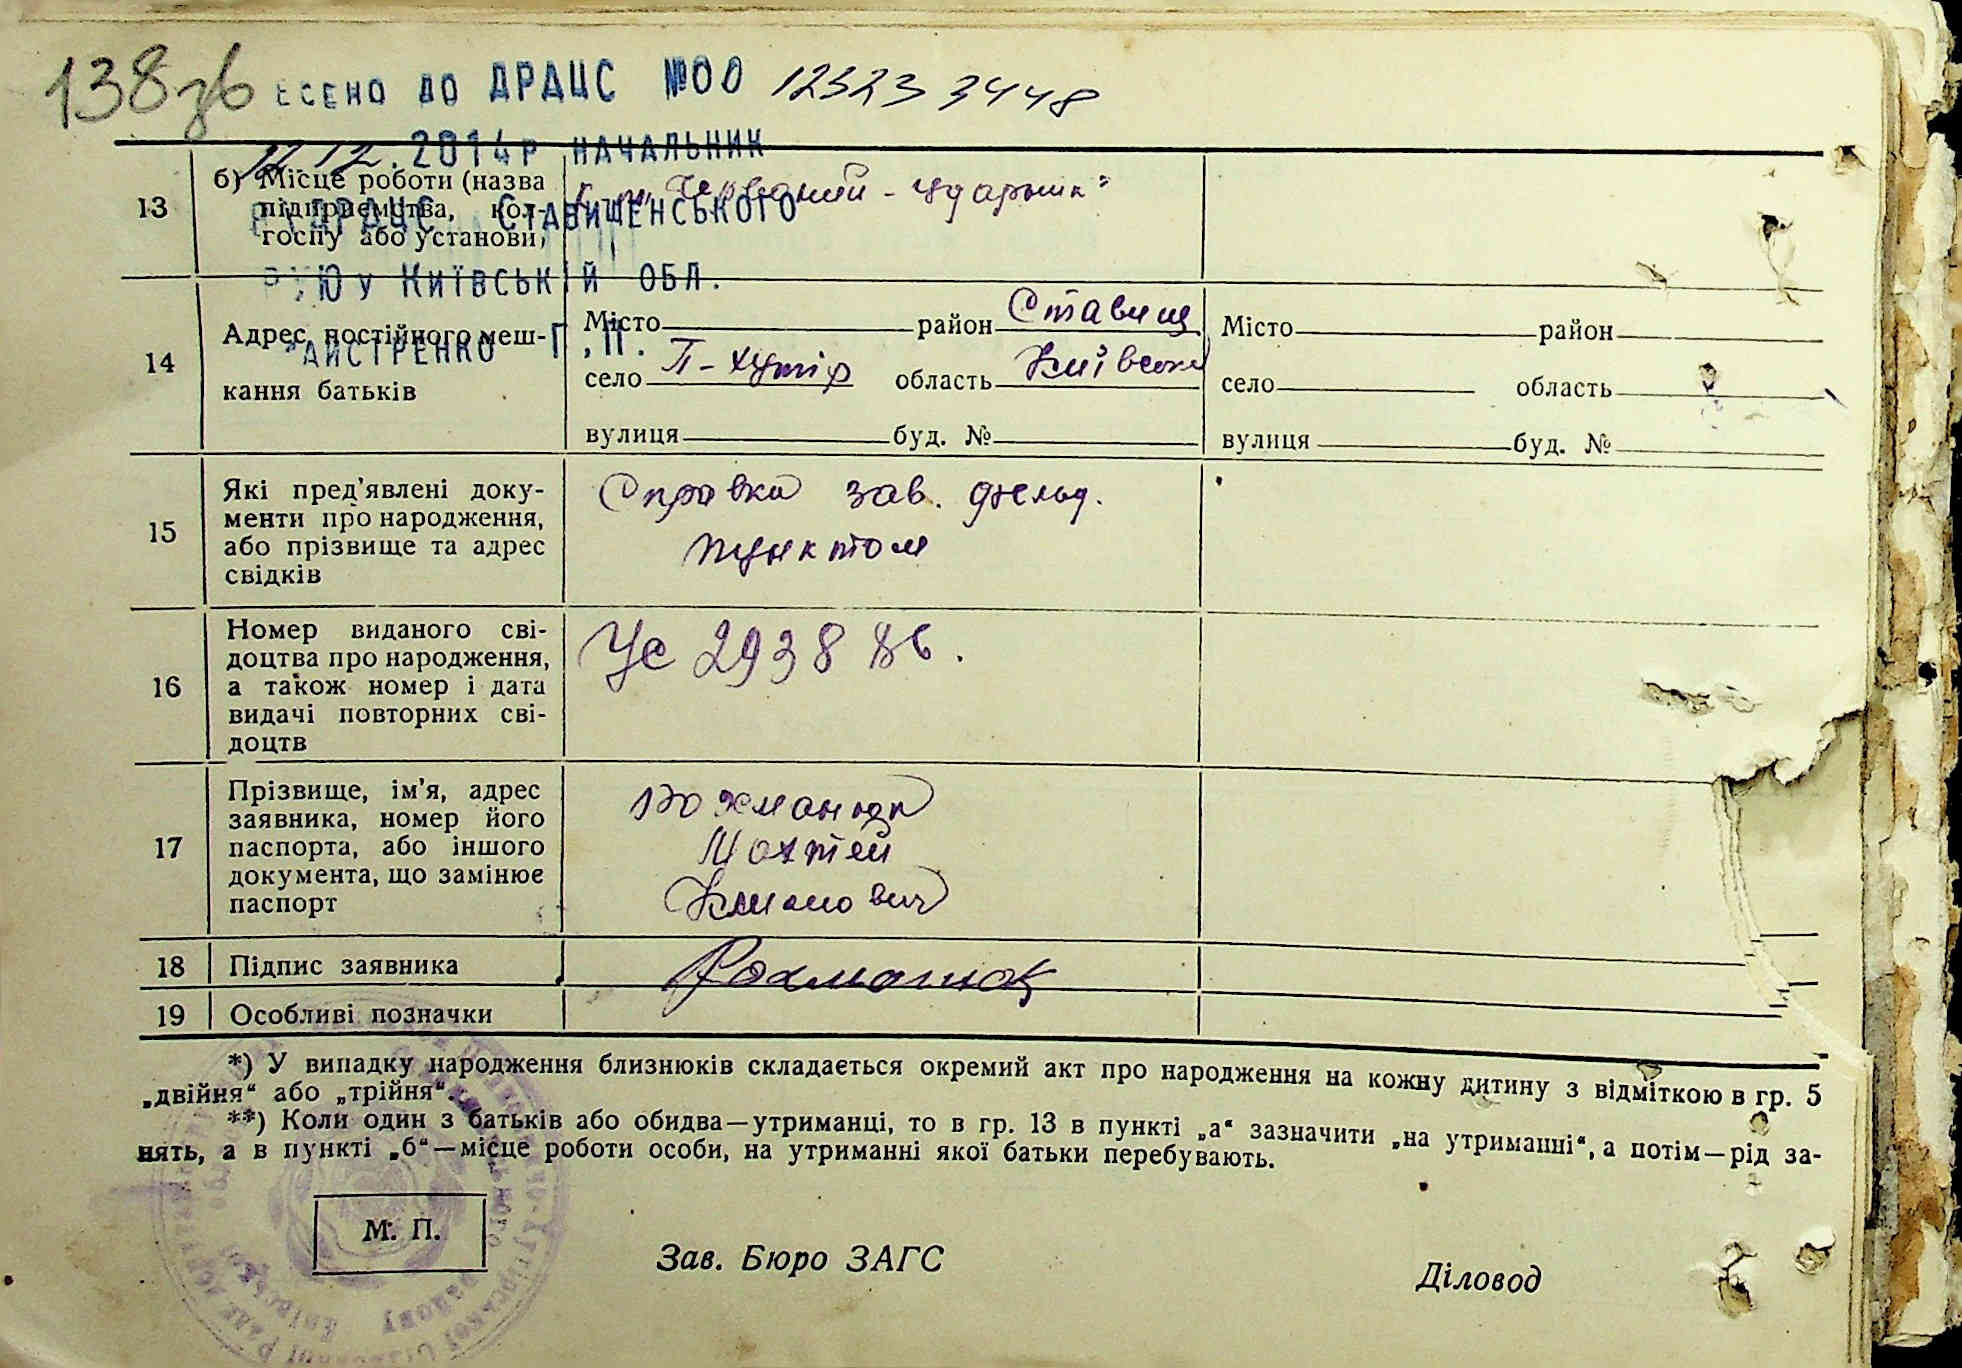 138зв
ЕСЕНО ДО ДРАЦС №00 12323 3448
12.12.2014р НАЧАЛЬНИК
ДРАЦС СТАВИЩЕНСЬКОГО
РУЮ у КИЇВСЬКІЙ ОБЛ.
АЙСТРЕНКО Г.П.
13 б) Місце роботи (назва
підприємства, кол-
госпу або установи)
„Червоний - ударник“
14 Адрес постійного меш-
кання батьків
Місто район Ставищ
село П-хутір область Київська
вулиця буд. №
Місто район
село область
вулиця буд. №
15 Які пред'явлені доку-
менти про народження,
або прізвище та адрес
свідків
Справка зав. фельд.
пунктом
16 Номер виданого сві-
доцтва про народження,
а також номер і дата
видачі повторних сві-
доцтв
УС 2938
17 Прізвище, ім'я, адрес
заявника, номер його
паспорта, або іншого
документа, що замінює
паспорт
Рохманюк
Мохтей
Климович
18 Підпис заявника Рохманюк
19 Особливі позначки
*) У випадку народження близнюків складається окремий акт про народження на кожну дитину з відміткою в гр. 5
„двійня“ або „трійня“.
**) Коли один з батьків або обидва—утриманці, то в гр. 13 в пункті „а“ зазначити „на утриманні“, а потім—рід за-
нять, а в пункті „б“—місце роботи особи, на утриманні якої батьки перебувають.
М. П.
Зав. Бюро ЗАГС
Діловод